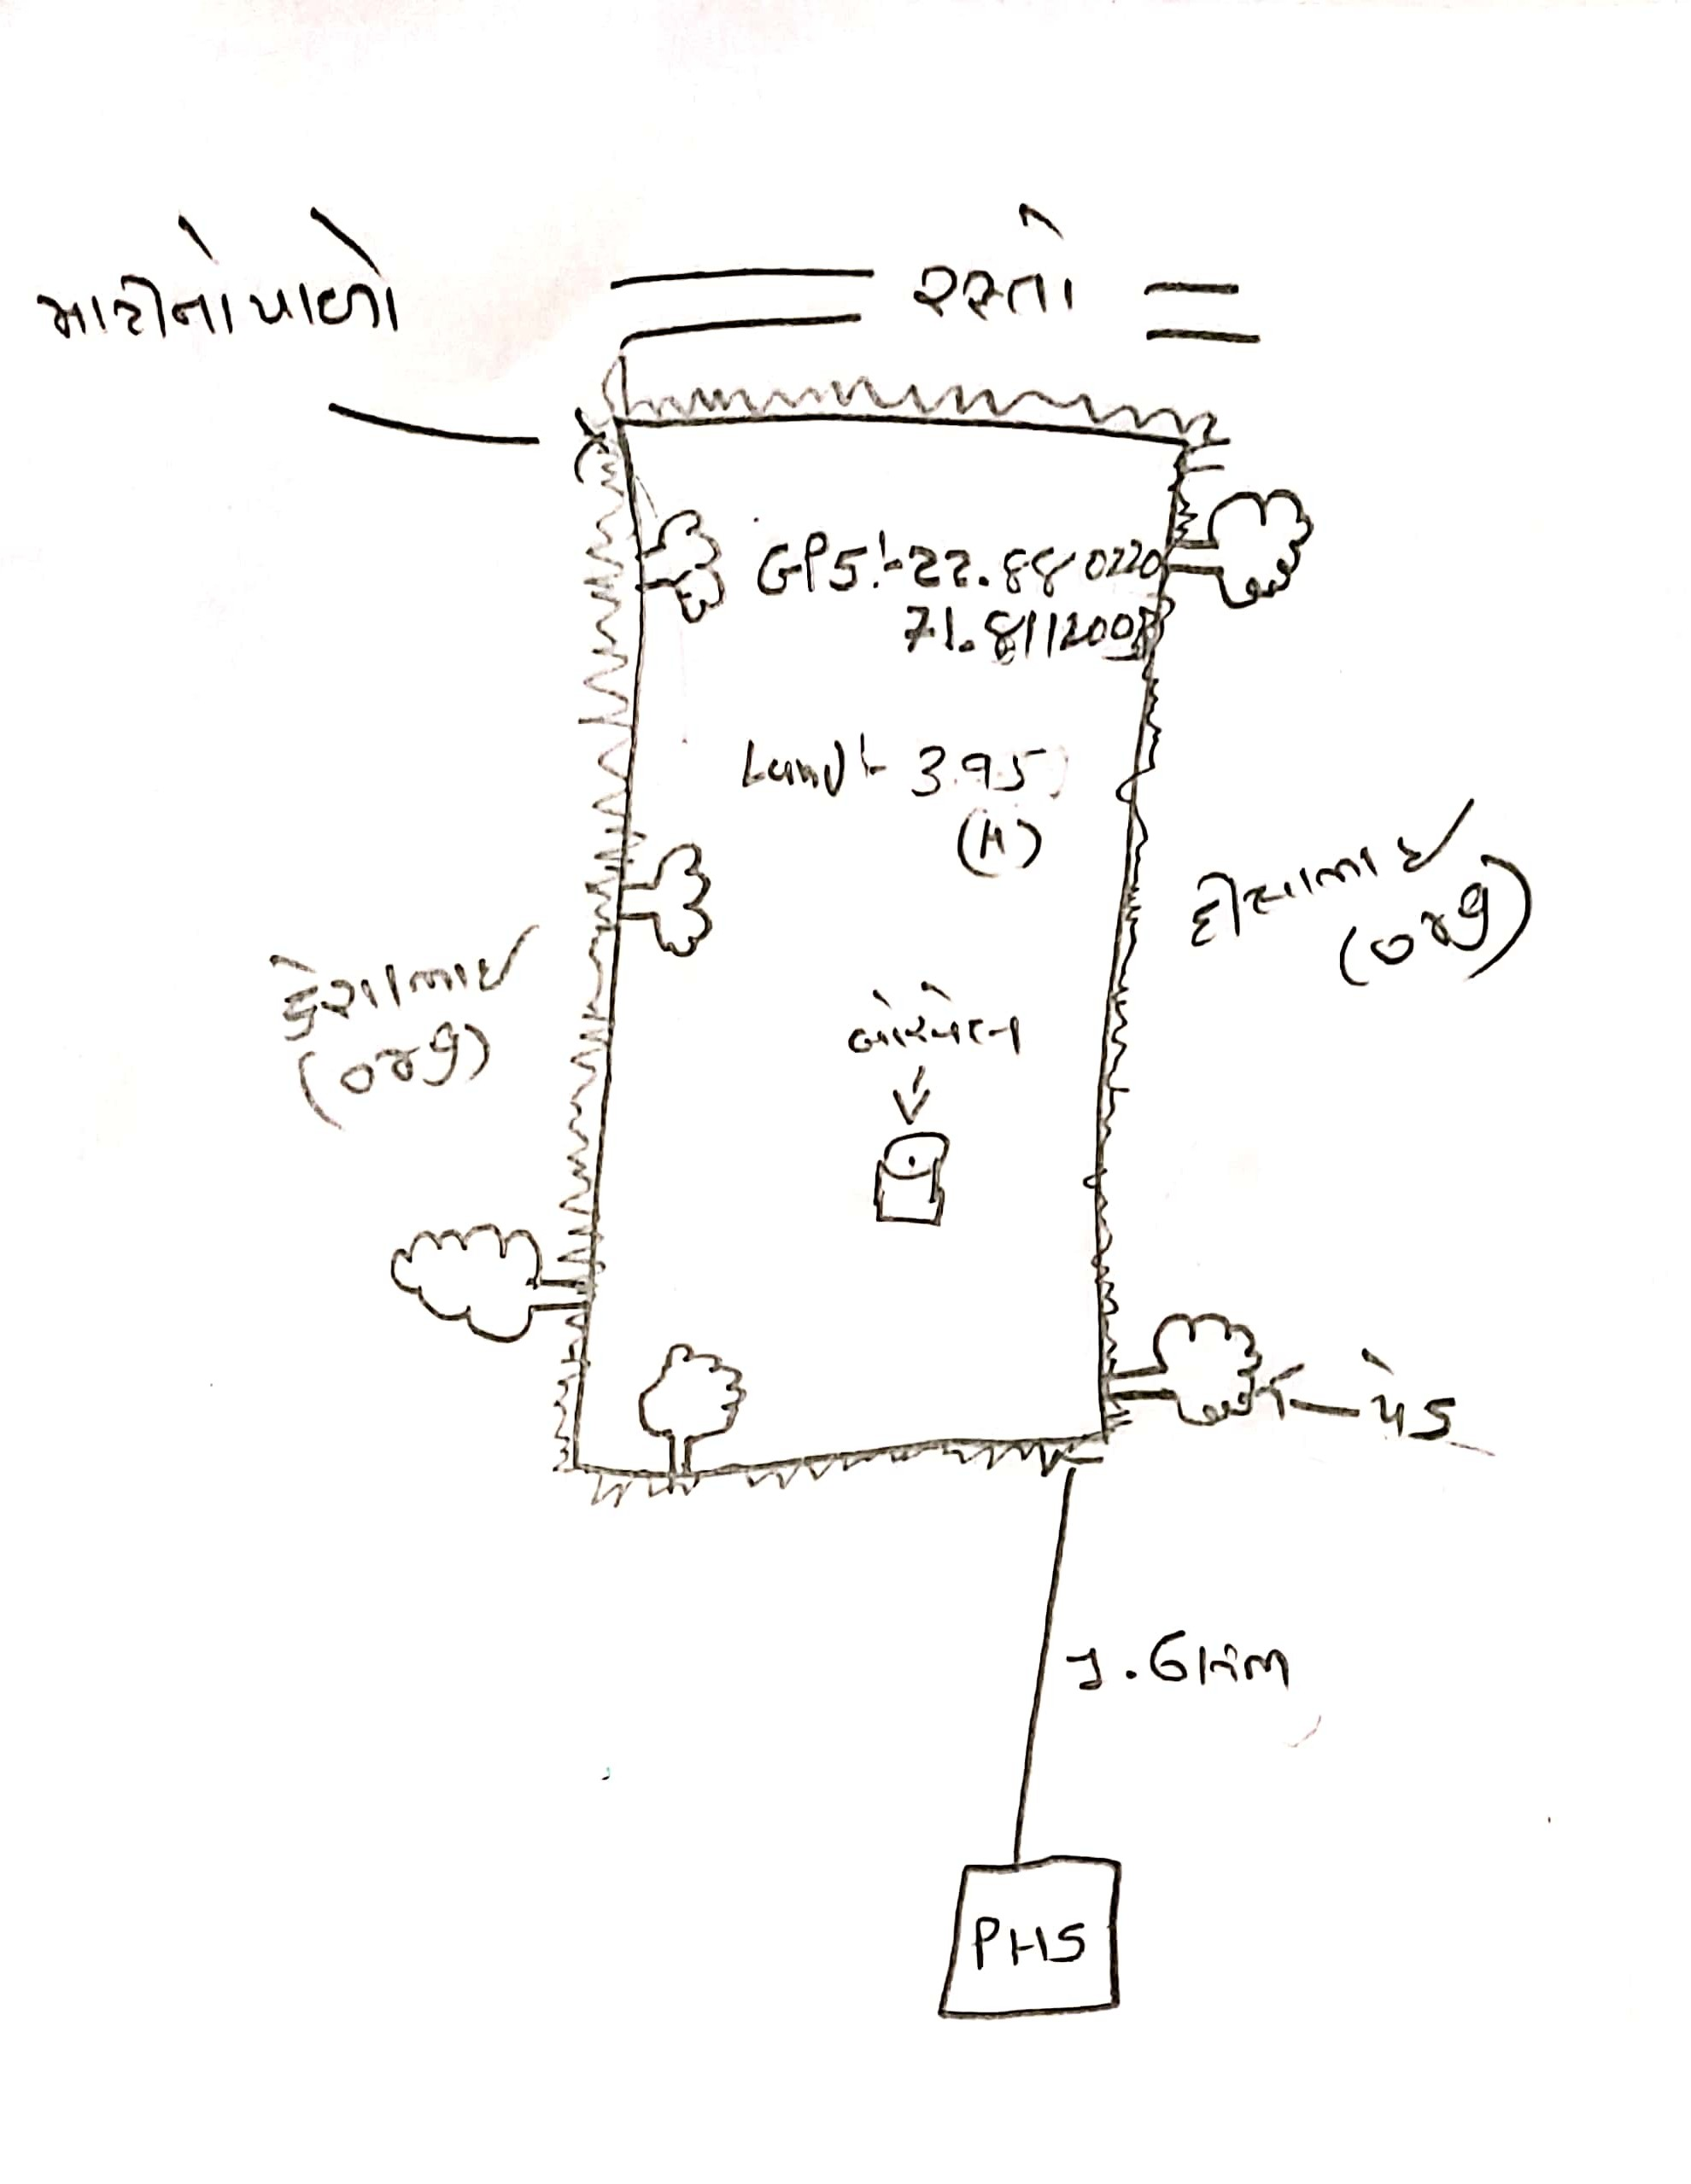 માટીનો પાળો
રસ્તો
GPS:-22.880220
71.811200
Land:- 3.95
(H)
હીરાભાઈ
(૦૪છ)
કેશાભાઈ
બોરવેલ
પેડ
1.6km
PHS